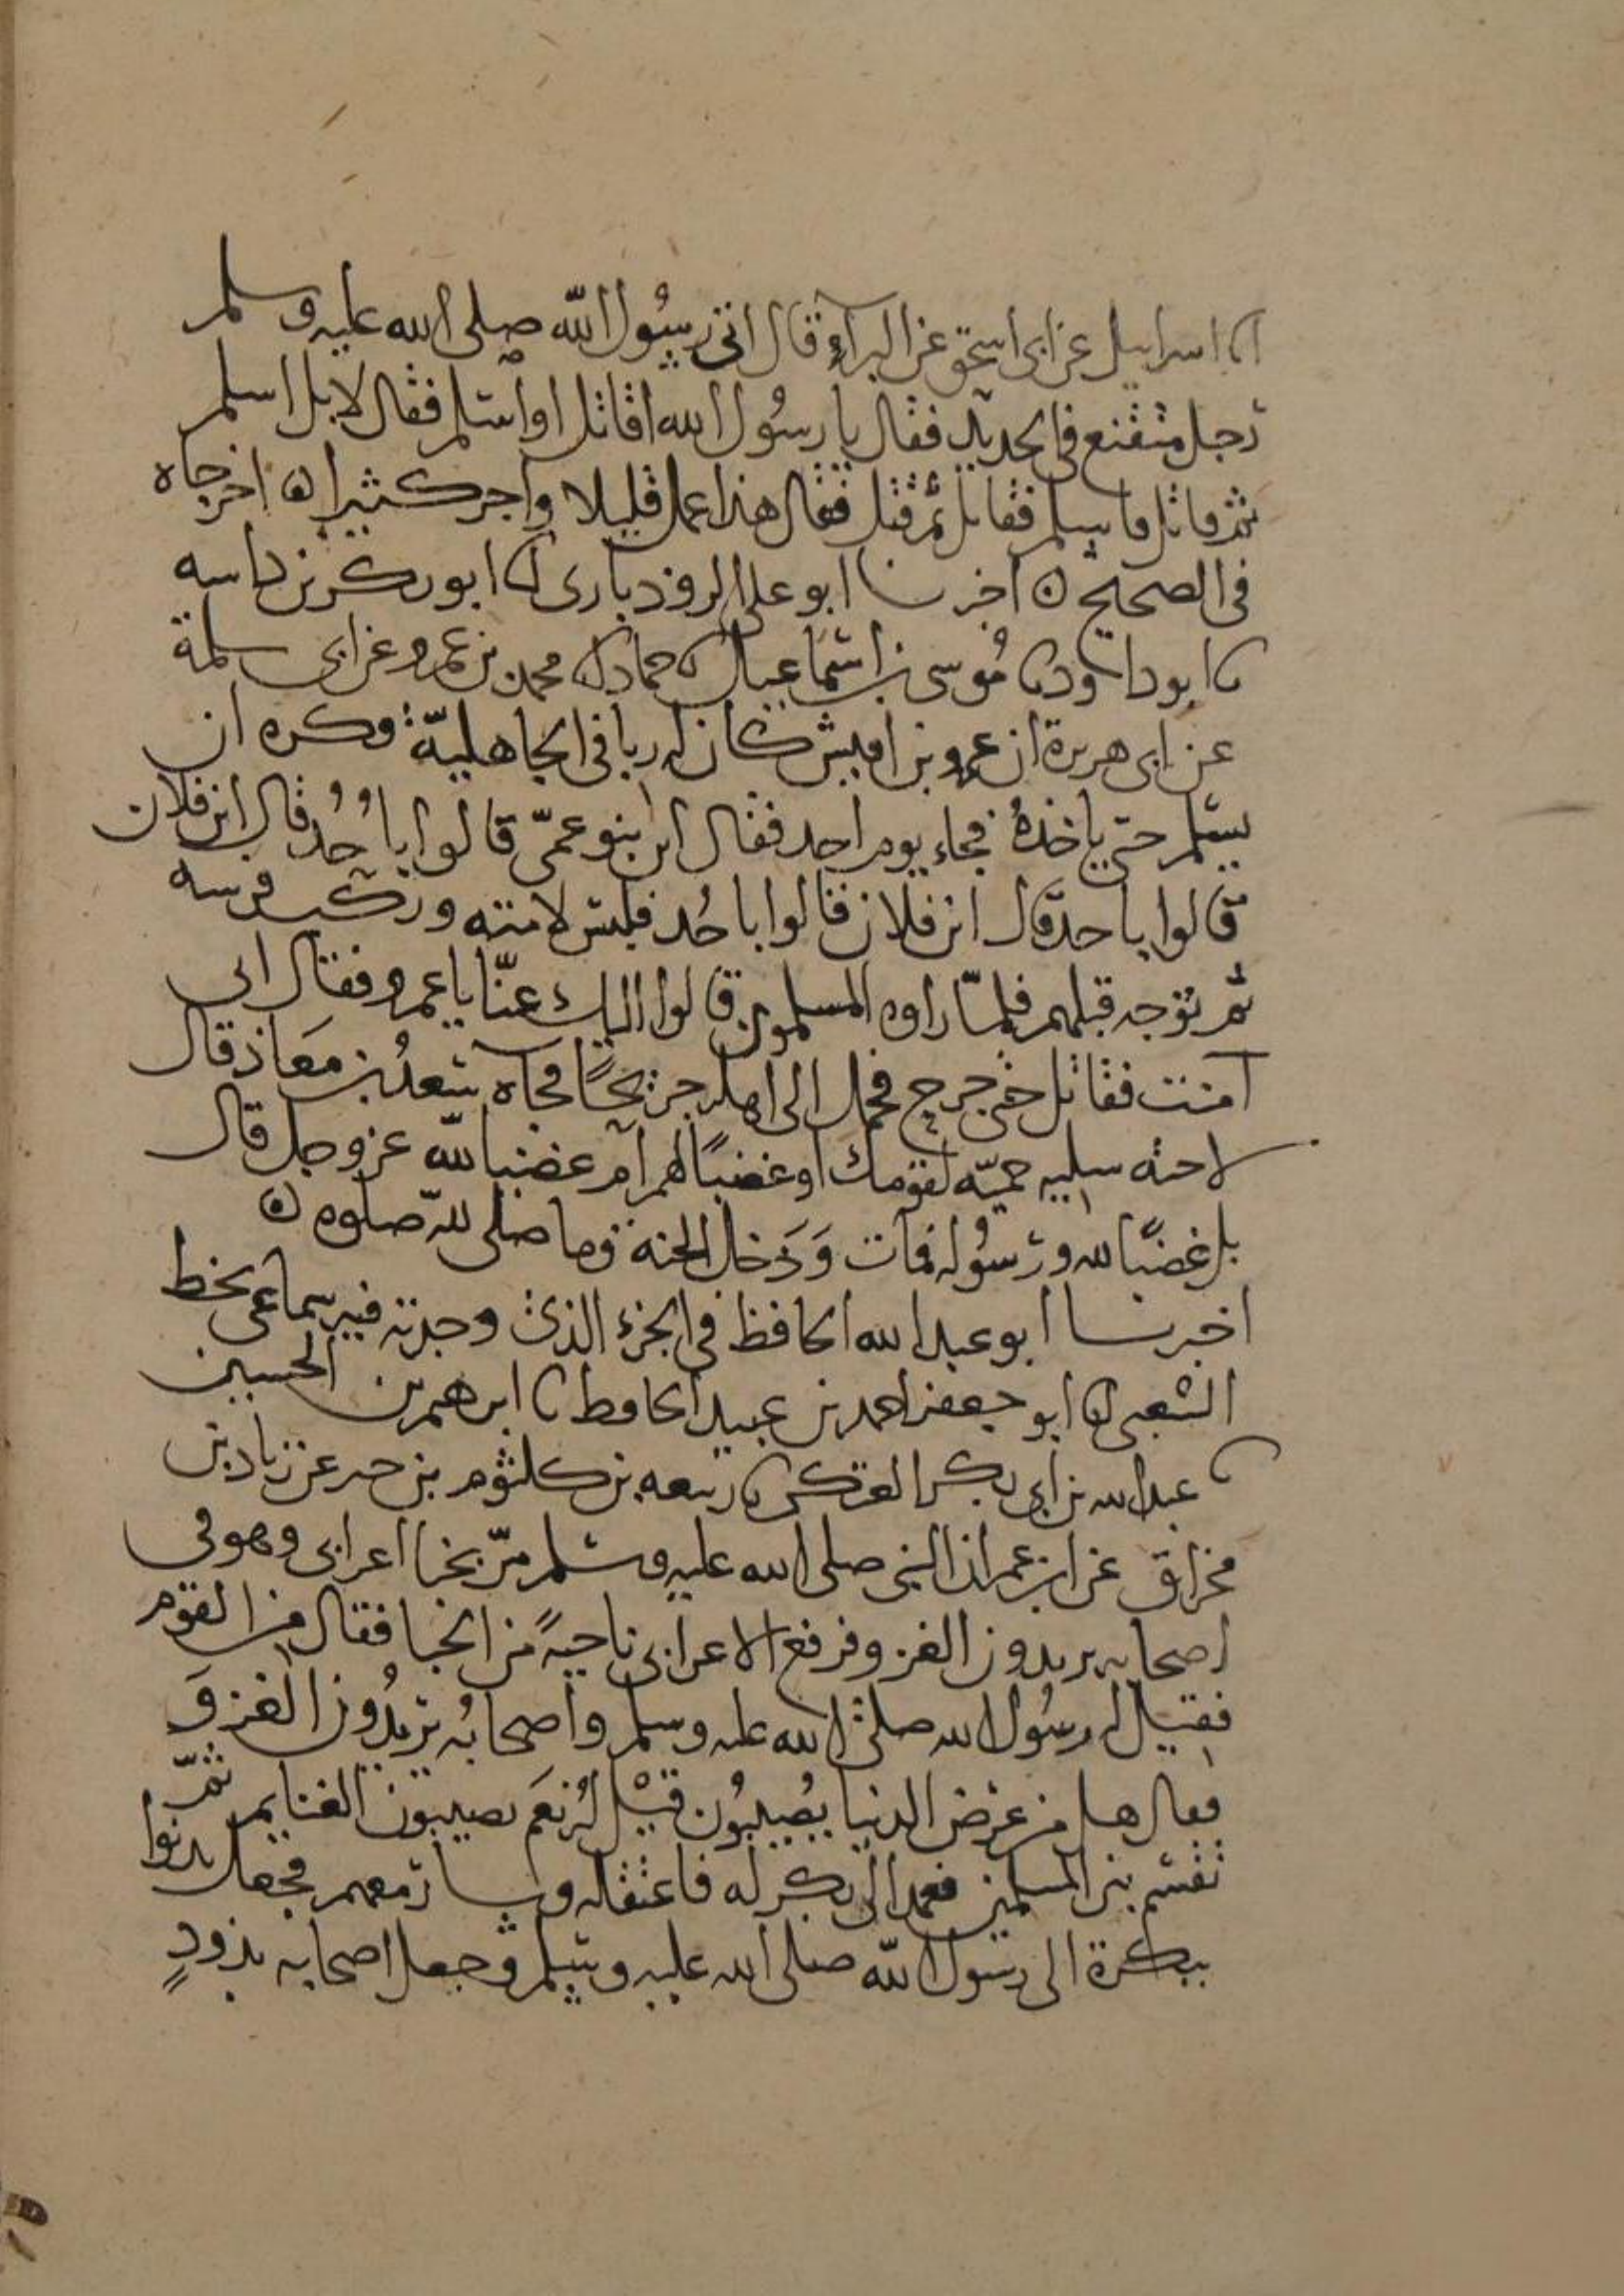 انا اسرائيل عن ابى اسحق عن البراء قال اتى رسول الله صلى الله عليه وسلم
رجل متقنع فى الحديد فقال يا رسول الله اقاتل او اسلم فقال لا بل اسلم
ثم قاتل فاسلم فقاتل ثم قتل فقال هذا عمل قليلا واجر كثيرا ه اخرجاه
فى الصحيح ه اخبرنا ابو على الروذبارى انا ابو بكر بن داسه
نا ابو داود نا موسى بن اسماعيل نا حماد انا محمد بن عمرو عن ابى سلمة
عن ابى هريرة ان عمرو بن اقيش كان له ربا فى الجاهليّة وكره ان
يسلم حتى ياخذهُ فجاء يوم احد فقال اين بنو عمّى قالوا باُحُد قال اين فلان
قالوا باحد قال اين فلان قالوا باحُد فلبس لامته وركب فرسه
ثم توجه قبلهم فلمّا راوه المسلمون قالوا اليك عنّا يا عمرو فقال انى
آمنت فقاتل حتى جرح فحمل الى اهله جريحًا فجاه سعدُ بن معَاذ قال
لاخته سليه حميّه لقومك او غضبًا لهم ام غضبا لله عز وجل قال
بل غضبًا لله ورسُوله فمات وَدَخل الجنه وما صلى لله صلوه ه
اخبرنا ابو عبد الله الحافظ فى الجزء الذى وجدته فيه سماعى بخط
الشعبى انا ابو جعفر احمد بن عبيد الحافظ نا ابرهيم بن الحسين
نا عبد الله بن ابى بكر العتكى نا ربيعه بن كلثوم بن جبر عن زياد بن
مخراق عن ابن عمر ان النبى صلى الله عليه وسلم مرّ بخبا اعرابى وهو فى
اصحابه يريدون الغزو فرفع الاعرابى ناحيةً من الخبا فقال من القوم
فقيل له رسُول الله صلى الله عليه وسلم واصحابُه يريدُون الغزوَ
فقال هل من عرَض الدنيا يُصيبُون قيل لهُ نعَم يصيبون الغنايم ثمّ
تقسم بين المسلمين فعمد الى بكر له فاعتقله وسار معهم فجعل يدنوا
ببكرة الى رسول الله صلى الله عليه وسلم وجعل اصحابه يذودٍ